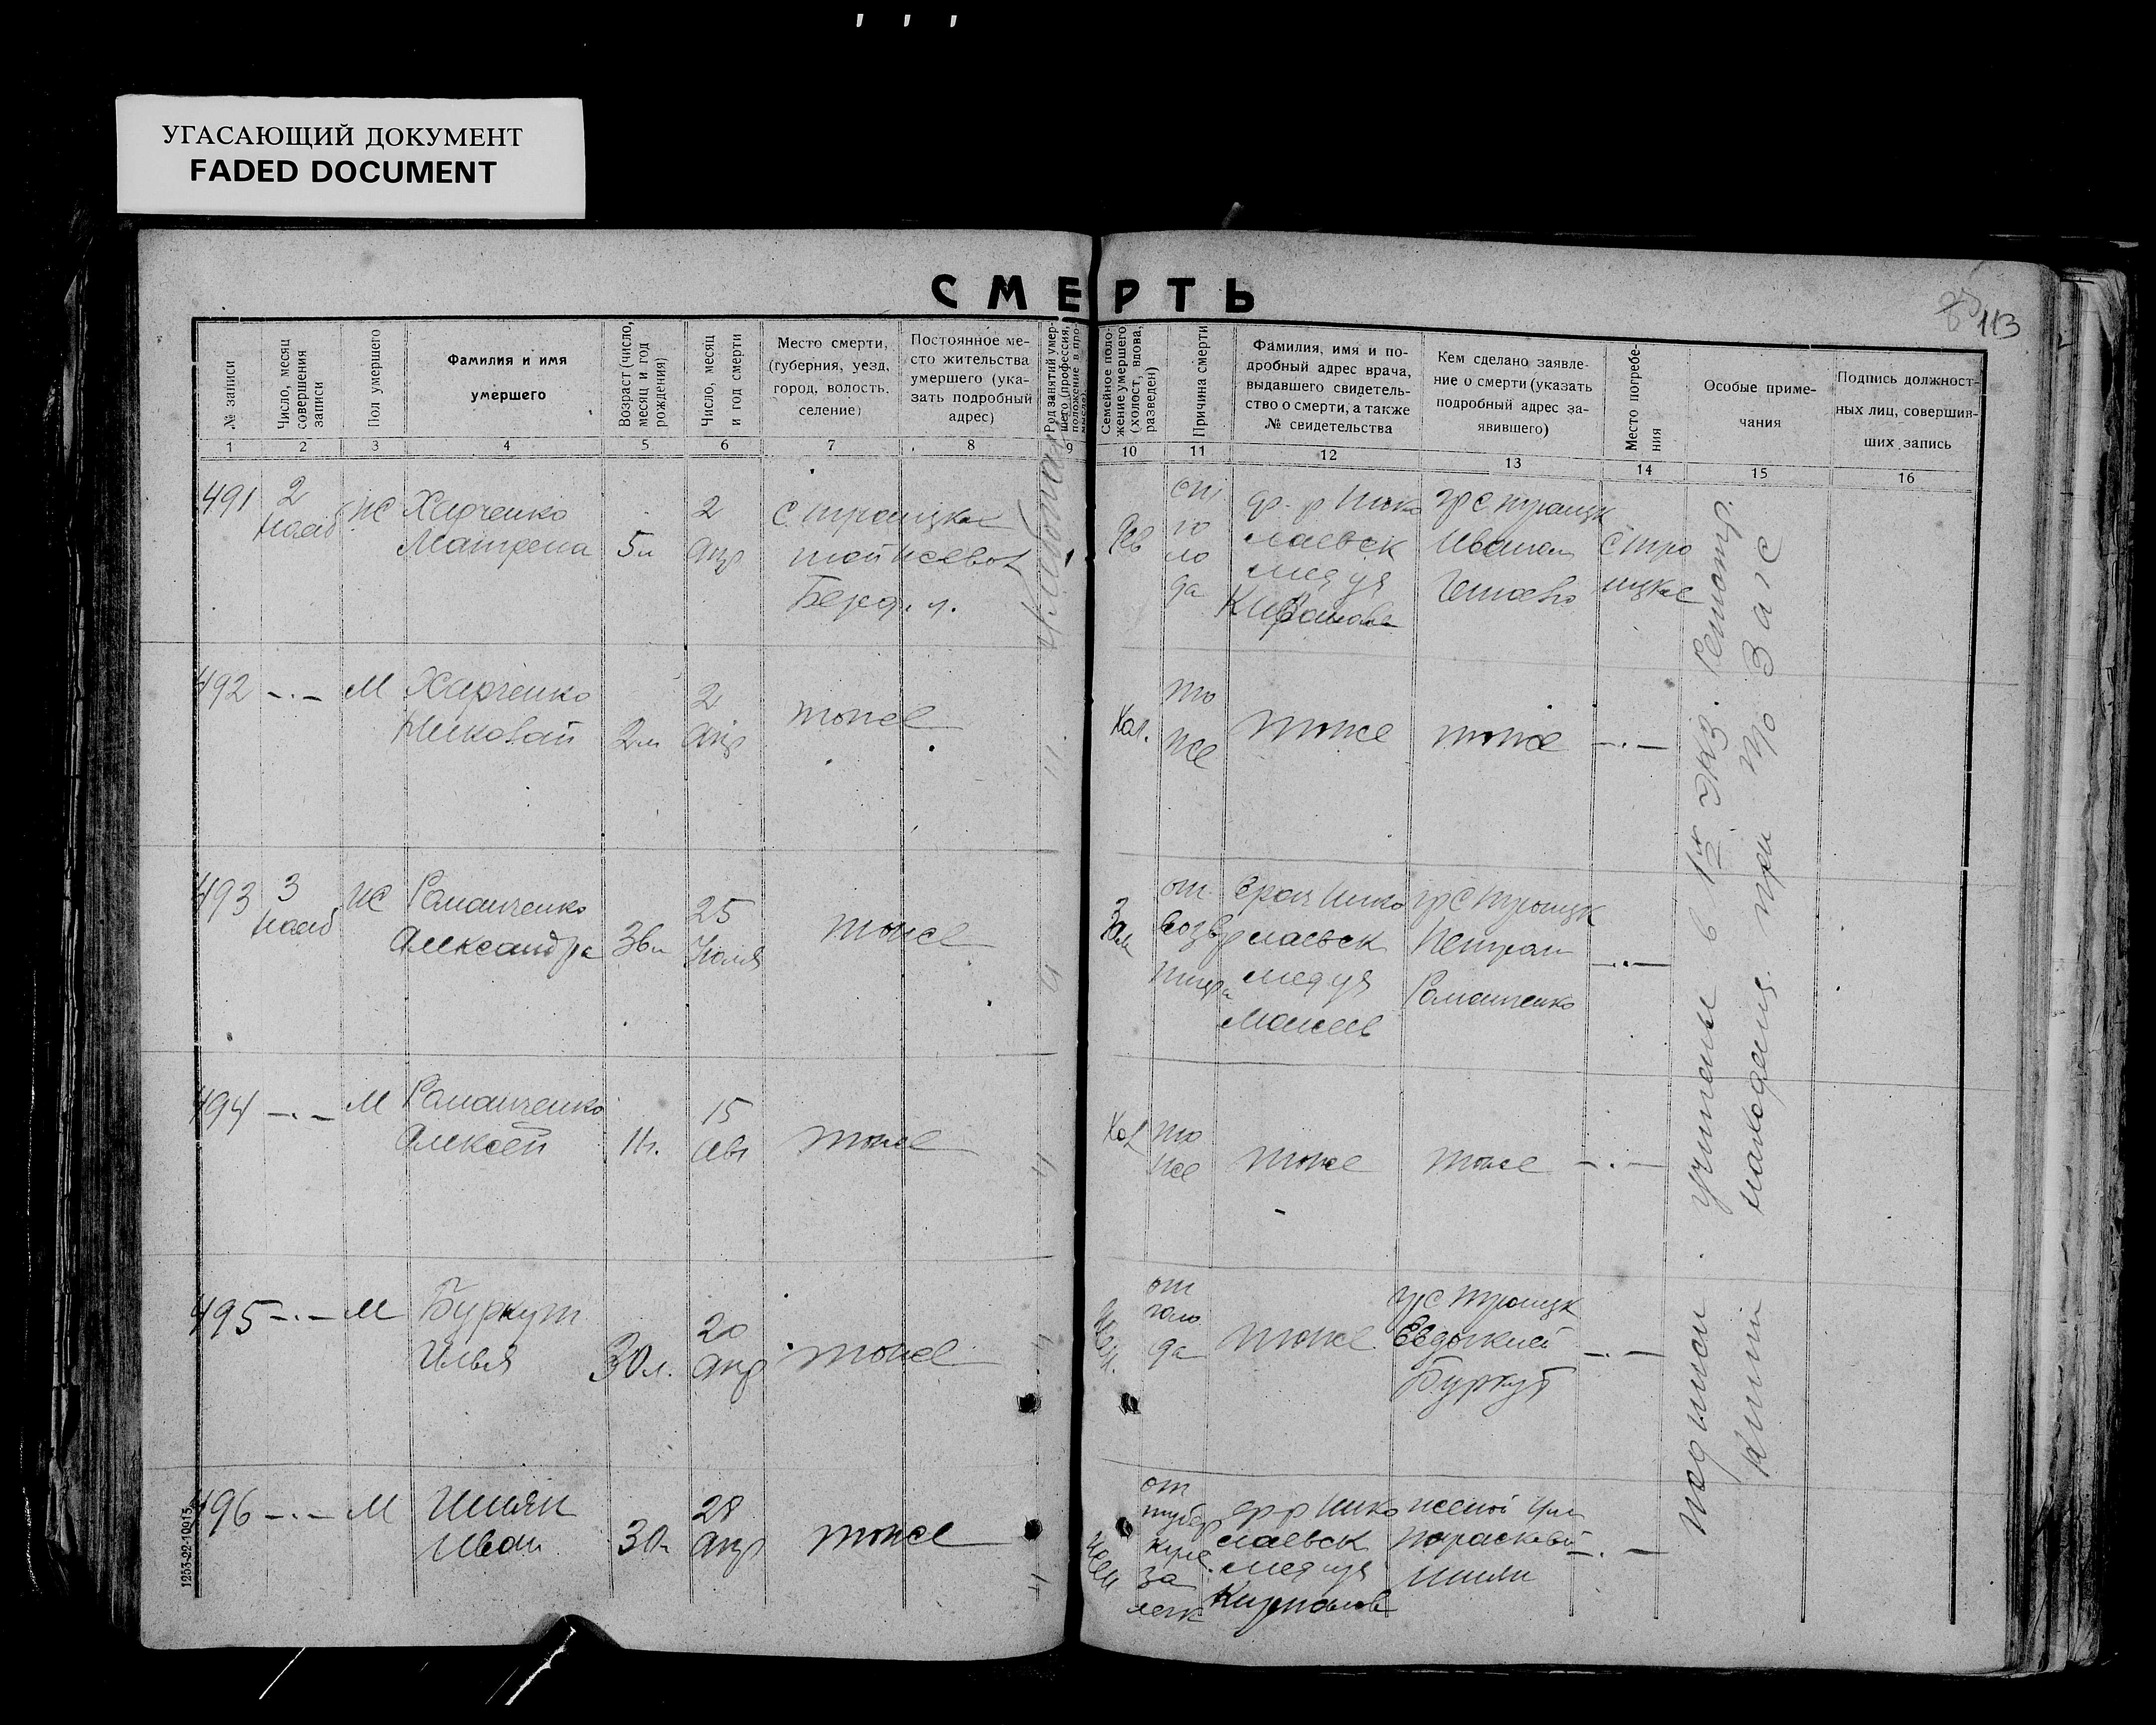 УГАСАЮЩИЙ ДОКУМЕНТ
FADED DOCUMENT
СМЕРТЬ
113
№ записи
Число, месяц
совершения
записи
Пол умершего
Фамилия и имя
умершего
Возраст (число,
месяц и год
рождения)
Число, месяц
и год смерти
Место смерти,
(губерния, уезд,
город, волость,
селение)
Постоянное ме-
сто жительства
умершего (ука-
зать подробный
адрес)
Род занятий умер-
шего (профессия,
положение в про-
мысле)
Семейное поло-
жение умершего
(холост, вдова,
разведен)
Причина смерти
Фамилия, имя и по-
дробный адрес врача,
выдавшего свидетель-
ство о смерти, а также
№ свидетельства
Кем сделано заявле-
ние о смерти (указать
подробный адрес за-
явившего)
Место погребе-
ния
Особые приме-
чания
Подпись должност-
ных лиц, совершив-
ших запись
1 2 3 4 5 6 7 8 9 10 11 12 13 14 15 16
491
2
нояб
ж
Харченко
Матрена
5л
2
апр
с. троицкое
той же вол
Берд. у.
хлебопаш
от
го
ло
да
лаевск
мед уч
гр с троицк
Иваном
с тро
ицкое
492 -·- М
Харченко
Николай
2л
2
апр
тоже
Хол.
то
же
тоже
тоже
-·-
493
3
нояб
ж
Романченко
Александра
36л
25
Июля
тоже
Зам
от
возвр
тифа
врач Нико
лаевск
мед уч
Моисеев
гр с троицк
Петром
Романченко
-·-
494 -·- М
Романченко
Алексей
11л.
15
авг
тоже
Хол
то
же
тоже
тоже
-·-
495 -·- М
Буркут
Илья
30л.
20
апр
тоже
от
голо
да
тоже
гр с троицк
Евдокией
Буркут
-·-
496 -·- М
Иван
30л
28
апр
тоже
от
тубер
куле
за
легк
лаевск
мед уч
женой
Параскевой
-·-
подписи учинены в 1м экз. Регистр.
книги находящ. при Загс
1253-22-10915